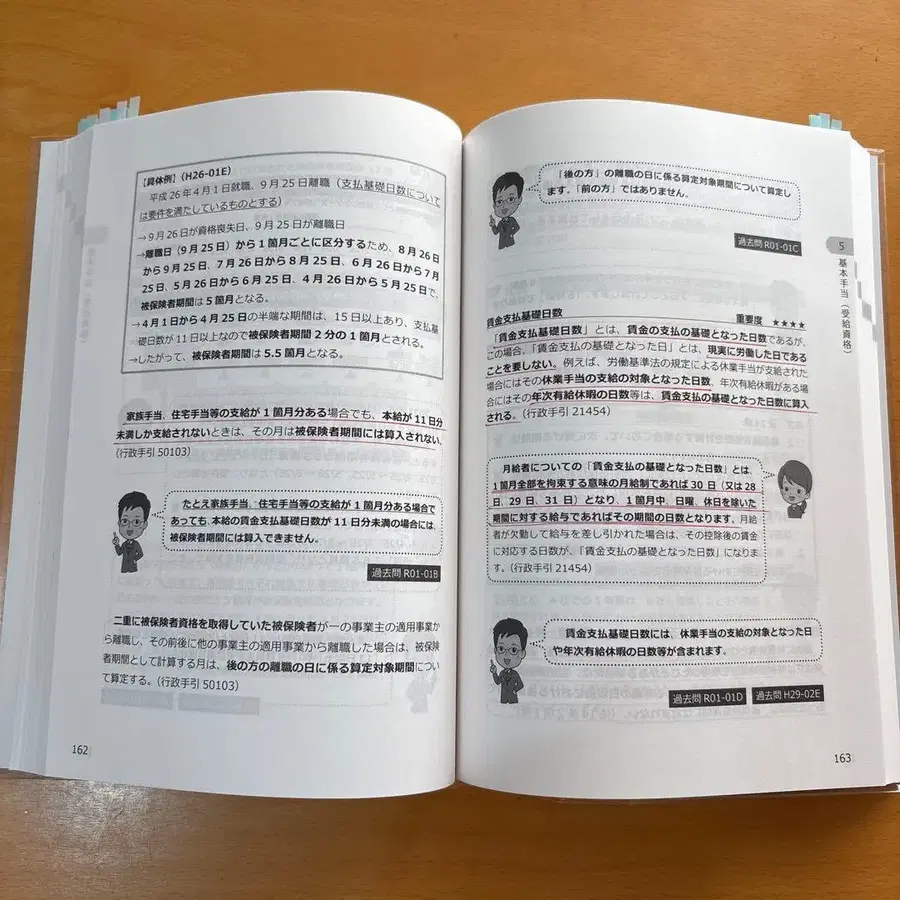 【具体例】(H26-01E)
平成26年4月1日就職、9月25日離職（支払基礎日数について
は要件を満たしているものとする）
→9月26日が資格喪失日、9月25日が離職日
→離職日（9月25日）から1箇月ごとに区分するため、8月26日
から9月25日、7月26日から8月25日、6月26日から7月
25日、5月26日から6月25日、4月26日から5月25日で、
被保険者期間は5箇月となる。
→4月1日から4月25日の半端な期間は、15日以上あり、支払基
礎日数が11日以上なので被保険者期間2分の1箇月とされる。
→したがって、被保険者期間は5.5箇月となる。
家族手当、住宅手当等の支給が1箇月分ある場合でも、本給が11日分
未満しか支給されないときは、その月は被保険者期間には算入されない。
（行政手引50103）
たとえ家族手当、住宅手当等の支給が1箇月分ある場合で
あっても、本給の賃金支払基礎日数が11日分未満の場合には、
被保険者期間には算入できません。
過去問 R01-01B
二重に被保険者資格を取得していた被保険者が一の事業主の適用事業か
ら離職し、その前後に他の事業主の適用事業から離職した場合は、被保険
者期間として計算する月は、後の方の離職の日に係る算定対象期間につい
て算定する。（行政手引50103）
162
「後の方」の離職の日に係る算定対象期間について算定し
ます。「前の方」ではありません。
過去問 R01-01C
5
基本手当（受給資格）
賃金支払基礎日数
重要度 ★★★★
「賃金支払基礎日数」とは、賃金の支払の基礎となった日数であるが、
この場合、「賃金支払の基礎となった日」とは、現実に労働した日である
ことを要しない。例えば、労働基準法の規定による休業手当が支給された
場合にはその休業手当の支給の対象となった日数、年次有給休暇がある場
合にはその年次有給休暇の日数等は、賃金支払の基礎となった日数に算入
される。（行政手引21454）
月給者についての「賃金支払の基礎となった日数」とは、
1箇月全部を拘束する意味の月給制であれば30日（又は28
日、29日、31日）となり、1箇月中、日曜、休日を除いた
期間に対する給与であればその期間の日数となります。月給
者が欠勤して給与を差し引かれた場合は、その控除後の賃金
に対応する日数が、「賃金支払の基礎となった日数」になりま
す。（行政手引21454）
賃金支払基礎日数には、休業手当の支給の対象となった日
や年次有給休暇の日数等が含まれます。
過去問 R01-01D 過去問 H29-02E
163